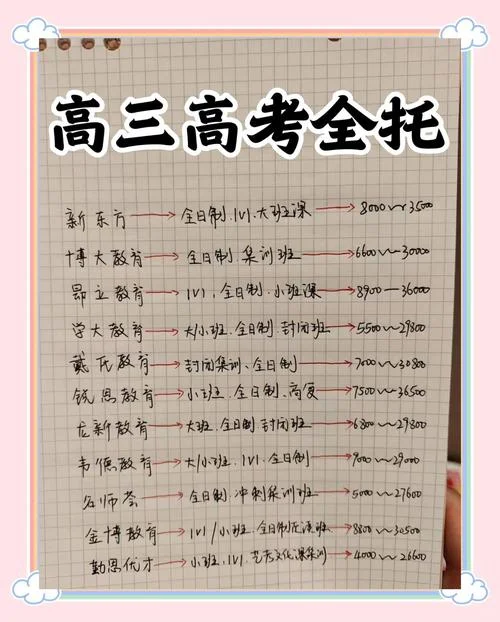 高三高考全托
新东方→全日制.1V1.大班课→8000~35000
博大教育→全日制.集训班→6600~30000
昂立教育→1V1.全日制.小班课→8900~36000
学大教育→大/小班.全日制.封闭班→5500~29800
戴氏教育→封闭集训、全日制→7000~30800
锐思教育→小班.全日制.高复→7500~36500
龙新教育→大班.全日制.封闭班→6800~29800
韦德教育→大/小班.1V1.全日制→9000~29000
名师荟→全日制.冲刺集训班→5000~27600
金博教育→1V1/小班.全日制走读班→8800~30500
勤思优才→小班.1V1.艺考文化课集训→4000~26600